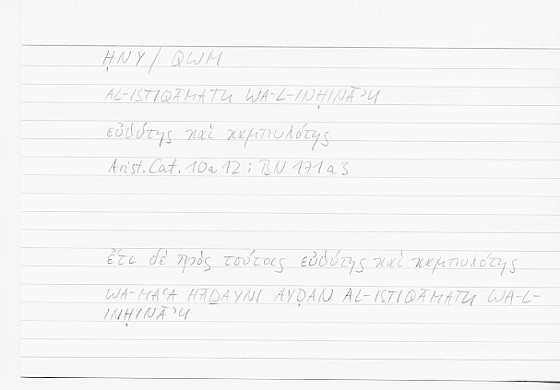 ḤNY / QWM
AL-ISTIQĀMATU WA-L-INḤINĀʾU
εὐθύτης καὶ καμπυλότης
Arist. Cat. 10a12 ; BN 171a3
ἔτι δὲ πρὸς τούτοις εὐθύτης καὶ καμπυλότης
WA-MAʿA HĀḎAYNI AYḌAN AL-ISTIQĀMATU WA-L-
INḤINĀʾU